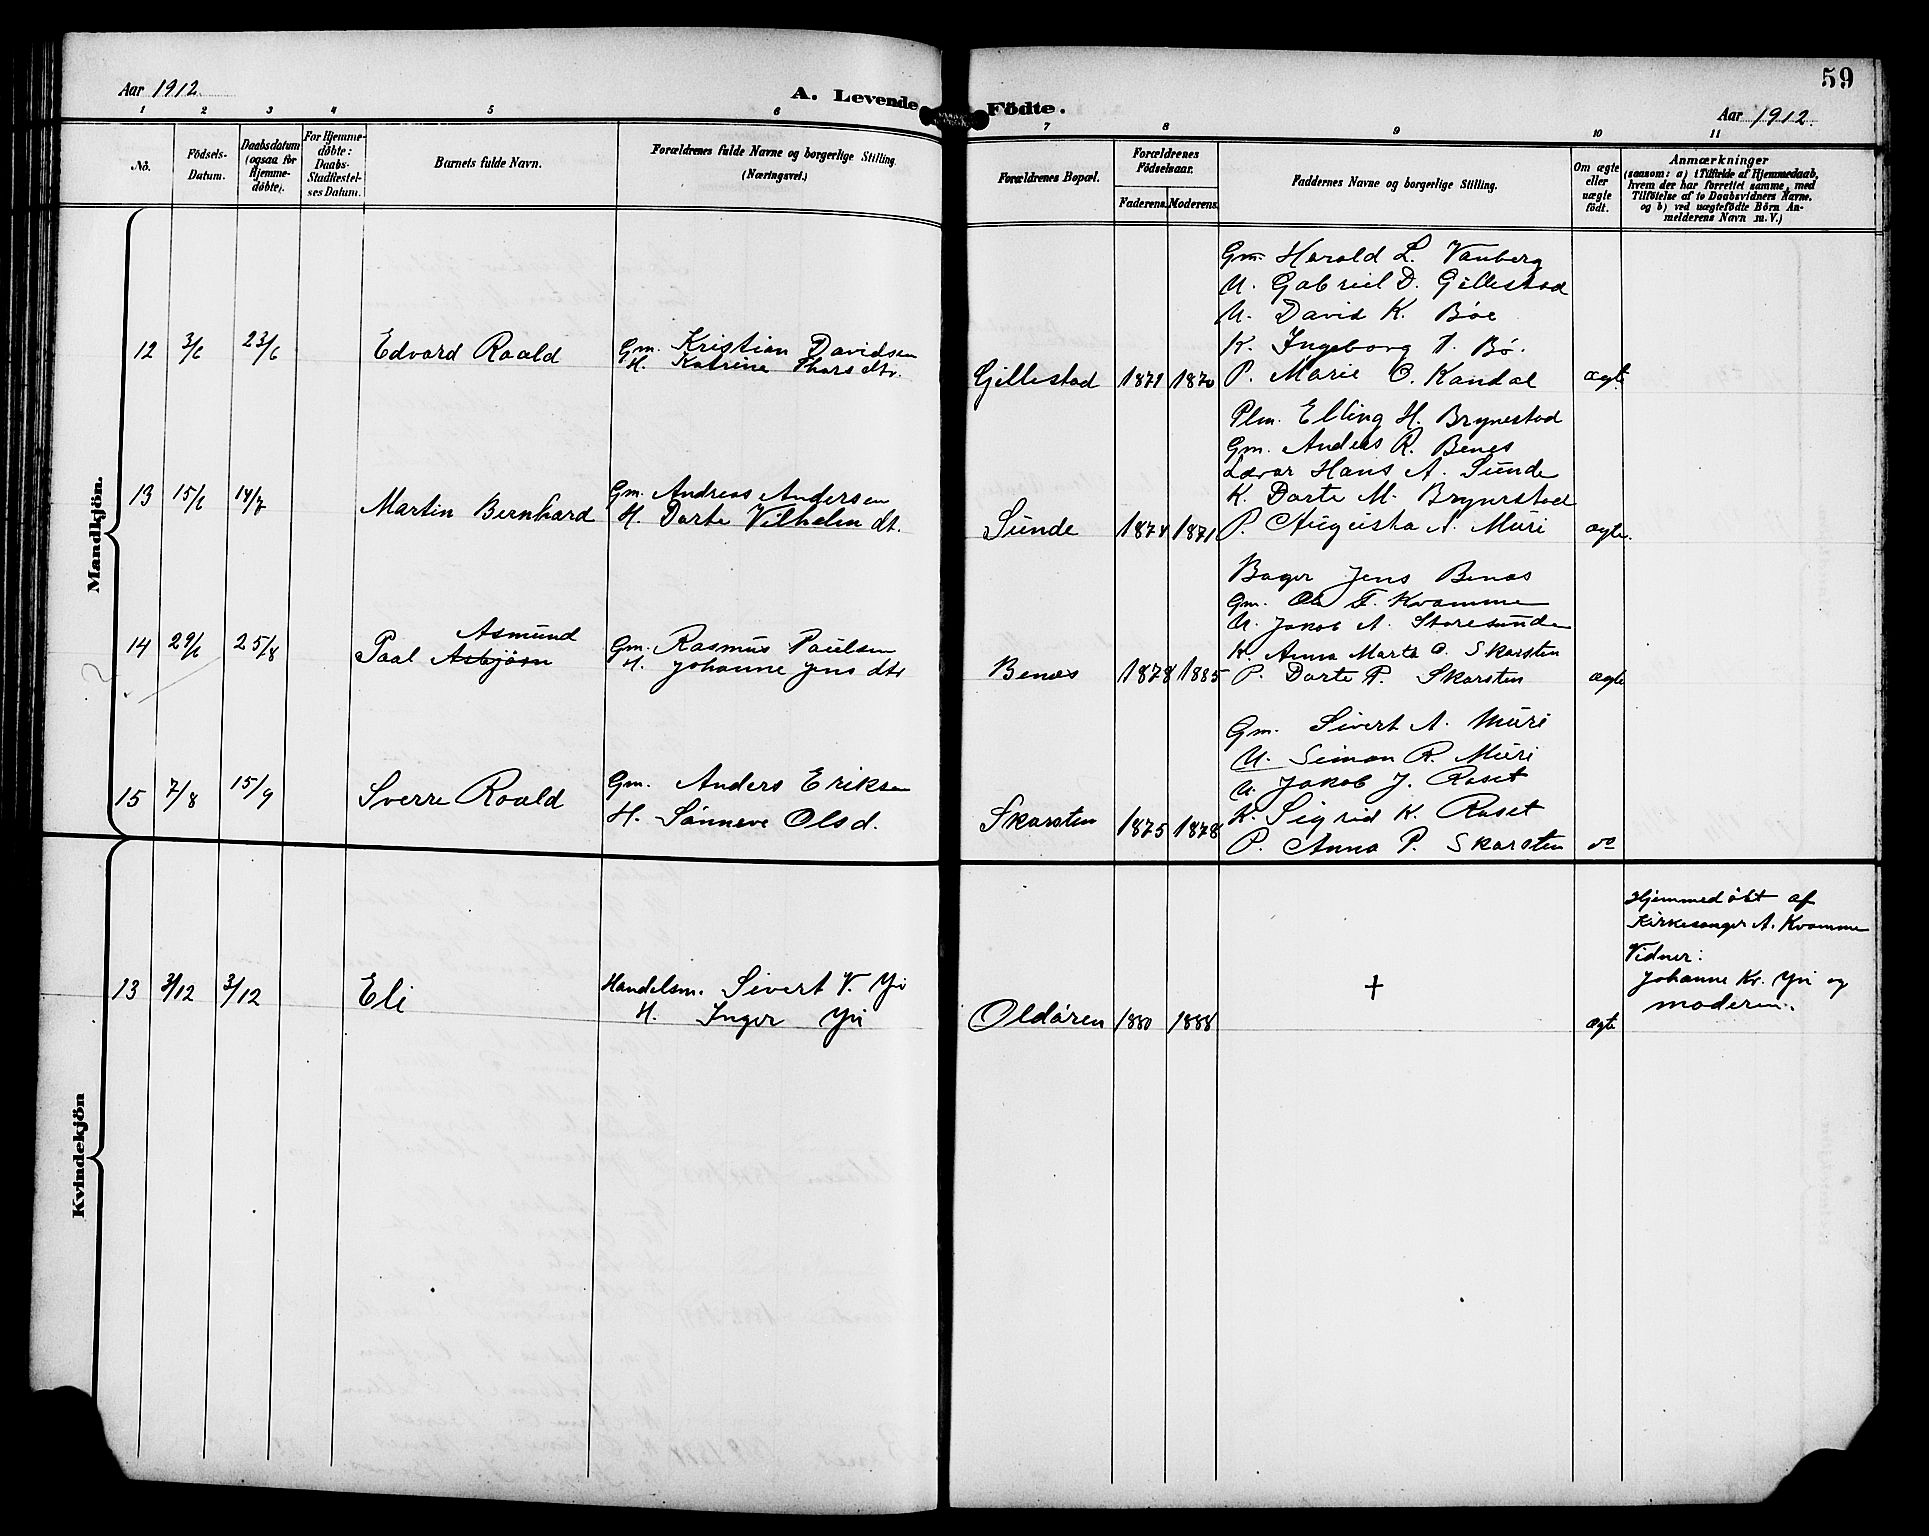 59
Aar 1912.
A. Levende Födte.
Aar 1912.
1 2 3 4 5 6 7 8 9 10 11
No.
Födsels-Datum.
Daabsdatum (ogsaa for Hjemme-döbte).
For Hjemme-döbte: Daabs-Stadfæstel-ses Datum.
Barnets fulde Navn.
Forældrenes fulde Navne og borgerlige Stilling.
(Næringsvei.)
Forældrenes Bopæl.
Forældrenes Födselsaar.
Faderens. Moderens.
Faddernes Navne og borgerlige Stilling.
Om ægte eller uægte födt.
Anmærkninger
(saasom: a) i Tilfælde af Hjemmedaab, hvem der har forrettet samme, med Tilföielse af to Daabsvidners Navne, og b) ved uægtefödte Börn An-melderens Navn m. V.)
Mandkjön.
12 3/6 23/6 Edvard Roald
Gm. Kristian Davidsen
H. Katrine Thorsdtr.
Gjillestad 1871 1870
Gm. Harald L. Vanberg
U. Gabriel D. Gillestad
U. David K. Böe
K. Ingeborg T. Bö.
P. Marie O. Kandal
ægt.
13 15/6 14/7 Martin Bernhard
Gm. Andreas Andersen
H. Dorte Vilhelm dt.
Sunde 1874 1871
Plm. Elling H. Brynestad
Gm. Anders R. Benes
Lærer Hans A. Sunde
K. Dorte M. Brynestad
P. Augusta A. Muri
ægte.
14 29/6 25/8 Paal Asbjörn
Asmund
Gm. Rasmus Paulsen
H. Johanne Jens dtr
Benes 1878 1885
Bager Jens Benes
Gm. Ole T. Kvamme
U. Jakob A. Storesunde
K. Anna Marta O. Skarsten
P. Dorte P. Skarsten
ægte
15 7/8 15/9 Sverre Roald
Gm. Anders Eriksen
H. Sönneve Olsd.
Skarsten 1875 1878
Gm. Sivert A. Muri
U. Simon R. Muri
U. Jakob J. Raset
K. Sigrid K. Raset
P. Anna P. Skarsten
do
Kvindekjön
13 3/12 3/12 Eli
Handelsm. Sivert V. Yri
H. Inger Yri
Oldören 1880 1888
†
ægte
Hjemmedöbt af
Kirkesanger A. Kvamme
Vidner:
Johanne Kr. Yri og
moderen.